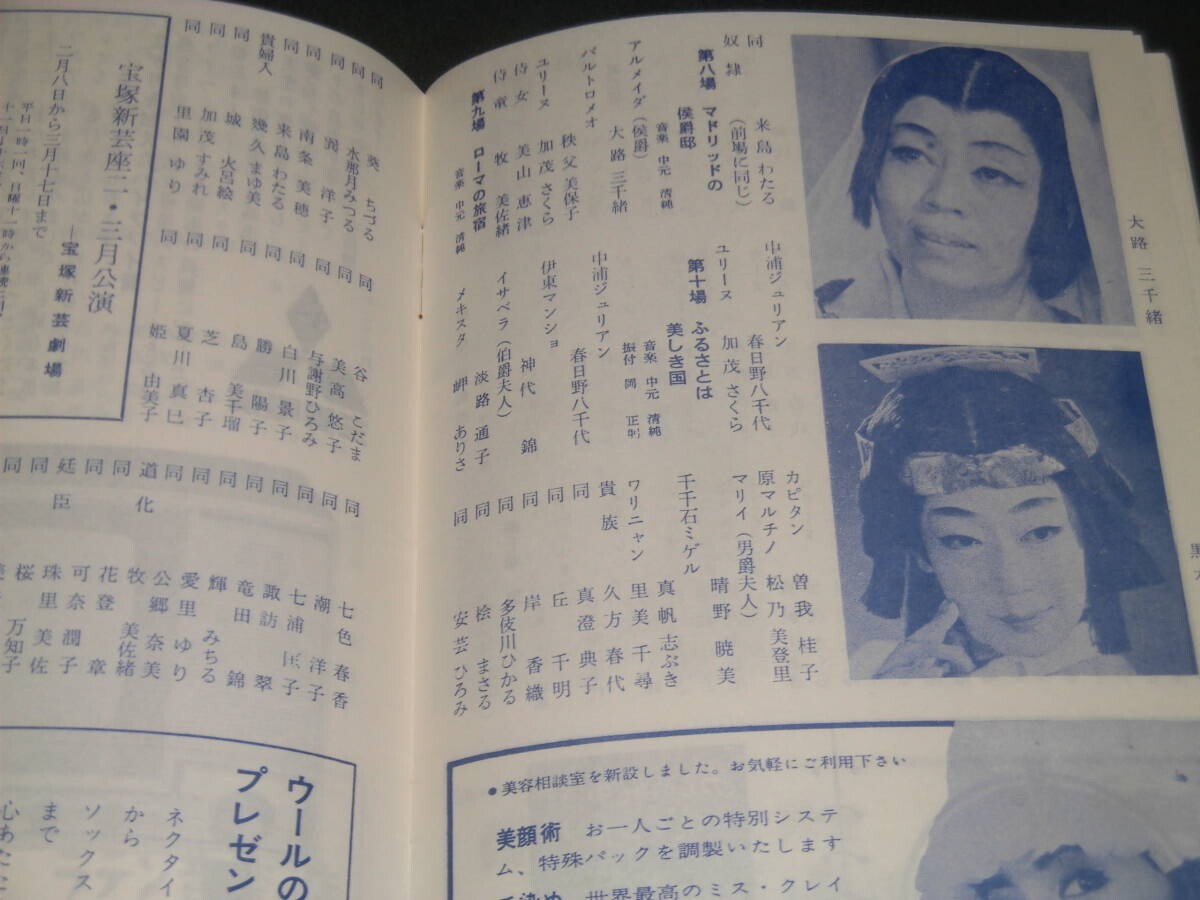 大路 三千緒
黒
同 来島 わたる
奴隷 (前場に同じ)
第八場 マドリッドの
侯爵邸
音楽 中元 清純
アルメイダ(侯爵)
大路 三千緒
バルトロメオ
秩父 美保子
ユリーヌ 加茂 さくら
侍女 美山 恵津
侍童 牧 美佐緒
第九場 ローマの旅宿
音楽 中元 清純
中浦ジュリアン
春日野八千代
ユリーヌ 加茂 さくら
第十場 ふるさとは
美しき国
音楽 中元 清純
振付 岡 正躬
中浦ジュリアン
春日野八千代
伊東マンショ
神代 錦
イサベラ(伯爵夫人)
淡路 通子
メキスタ 岬 ありさ
カピタン 曽我 桂子
原マルチノ 松乃 美登里
マリイ(男爵夫人)
晴野 暁美
千千石ミゲル
真帆 志ぶき
ワリニャン 里美 千尋
貴族 久方 春代
同 真澄 典子
同 丘 千明
同 岸 香織
同 多伎川ひかる
同 桧 まさる
同 安芸 ひろみ
同 葵 ちづる
同 水那月みつる
同 洋子
同 南条 美穂
同 来島 わたる
貴婦人 幾久 まゆ美
同 城 火呂絵
同 加茂 すみれ
同 里園 ゆり
同 谷 こだま
同 美高 悠子
同 与謝野ひろみ
同 白川 景子
同 勝 陽子
同 島 美千瑠
同 芝 杏子
同 夏川 真巳
同 姫 由美子
同 七色 春香
同 潮 洋子
同 七浦 匡子
同 諏訪 翠
同 竜田 錦
同 輝 みちる
同 愛里 ゆり
同 公郷 奈美
道化 牧 美佐緒
同 花登 章
同 可奈 潤子
廷臣 珠里 美佐
同 桜 万知子
同
宝塚新芸座二・三月公演
―宝塚新芸劇場
二月八日から三月十七日まで
平日一時一回、日曜十一時から
ウールの
プレゼン
ネクタイ
から
ソックス
まで
心あたた
●美容相談室を新設しました。お気軽にご利用下さい
美顔術 お一人ごとの特別システ
ム、特殊パックを調製いたします
世界最高のミス・クレイ